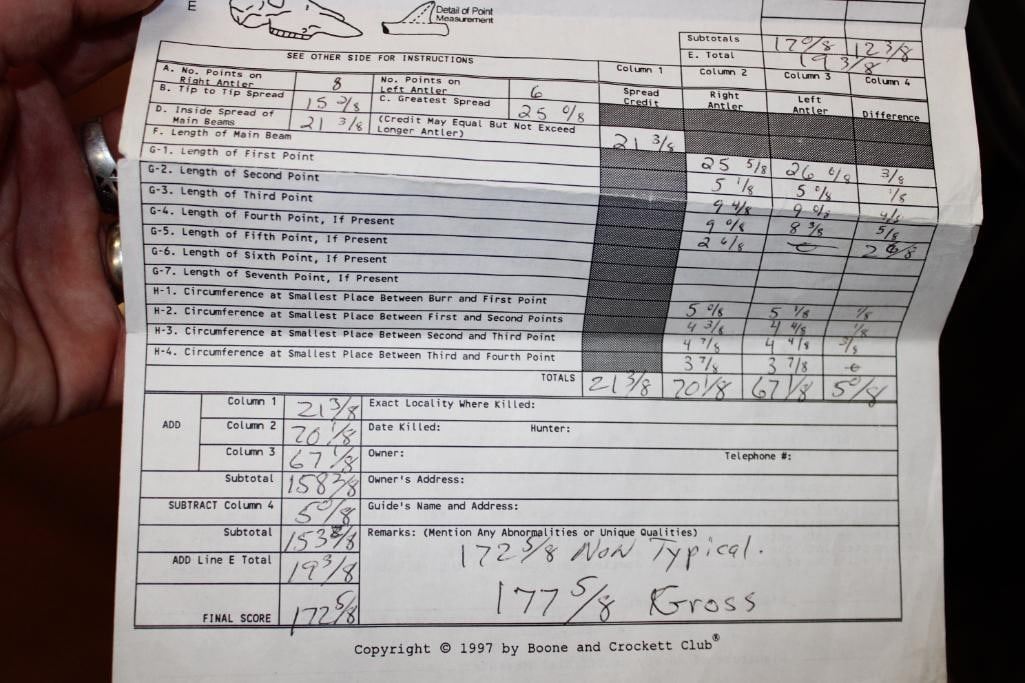 E
Detail of Point
Measurement
SEE OTHER SIDE FOR INSTRUCTIONS
Subtotals 17 0/8 12 3/8
E. Total 19 3/8
Column 1 Column 2 Column 3 Column 4
A. No. Points on Right Antler 8 No. Points on Left Antler 6 Spread Credit Right Antler Left Antler Difference
B. Tip to Tip Spread 15 C. Greatest Spread 25 0/8
D. Inside Spread of Main Beams 21 3/8 (Credit May Equal But Not Exceed Longer Antler) 21 3/8
F. Length of Main Beam 25 5/8 26 0/8 3/8
G-1. Length of First Point 5 1/8 5 0/8 1/8
G-2. Length of Second Point 9 4/8 9 0/8 4/8
G-3. Length of Third Point 9 0/8 8 3/8 5/8
G-4. Length of Fourth Point, If Present 2 6/8
G-5. Length of Fifth Point, If Present
G-6. Length of Sixth Point, If Present
G-7. Length of Seventh Point, If Present
H-1. Circumference at Smallest Place Between Burr and First Point 5 0/8 5 1/8 1/8
H-2. Circumference at Smallest Place Between First and Second Points 4 3/8 4 4/8 1/8
H-3. Circumference at Smallest Place Between Second and Third Point 4 7/8 4 4/8 3/8
H-4. Circumference at Smallest Place Between Third and Fourth Point 3 7/8 3 7/8
TOTALS 21 3/8 70 1/8 67 1/8 5 0/8
ADD
Column 1 21 3/8 Exact Locality Where Killed:
Column 2 70 1/8 Date Killed: Hunter:
Column 3 67 1/8 Owner: Telephone #:
Subtotal 158 Owner's Address:
SUBTRACT Column 4 5 0/8 Guide's Name and Address:
Subtotal 153 Remarks: (Mention Any Abnormalities or Unique Qualities)
ADD Line E Total 19 3/8 172 5/8 Non Typical.
FINAL SCORE 172 5/8 177 5/8 Gross
Copyright © 1997 by Boone and Crockett Club®